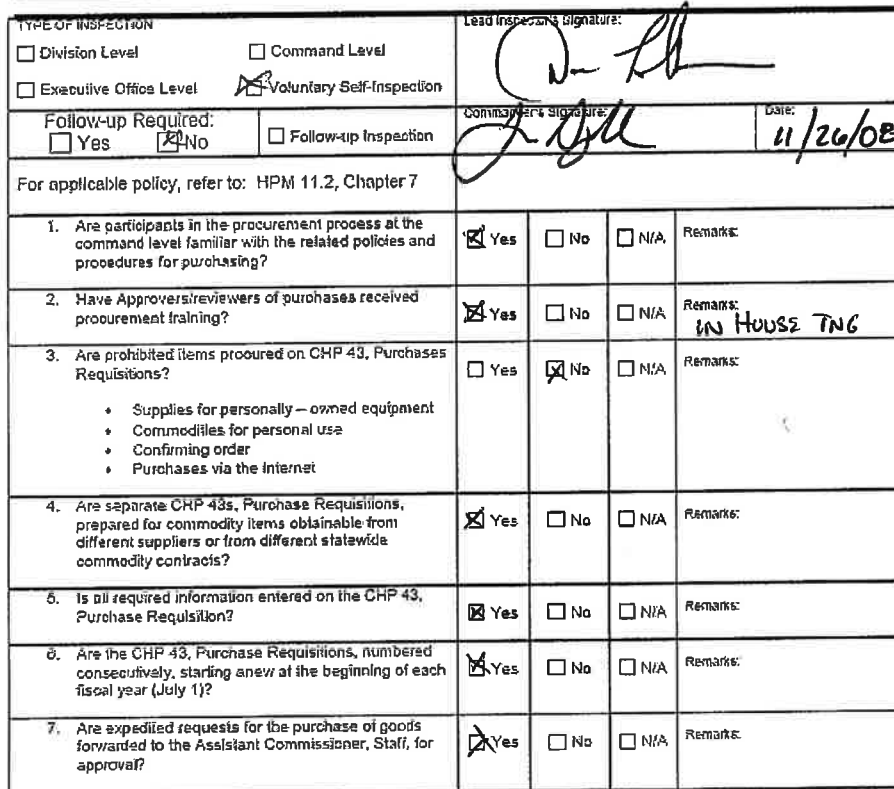 TYPE OF INSPECTION
☐ Division Level ☐ Command Level
☐ Executive Office Level ☒ Voluntary Self-Inspection
Lead Inspector's Signature:
Follow-up Required:
☐ Yes ☒ No
☐ Follow-up Inspection
Commander's Signature:
Date:
11/26/08
For applicable policy, refer to: HPM 11.2, Chapter 7
1. Are participants in the procurement process at the
command level familiar with the related policies and
procedures for purchasing?
☒ Yes ☐ No ☐ N/A Remarks:
2. Have Approvers/reviewers of purchases received
procurement training?
☒ Yes ☐ No ☐ N/A Remarks:
IN HOUSE TNG
3. Are prohibited items procured on CHP 43, Purchases
Requisitions?
• Supplies for personally – owned equipment
• Commodities for personal use
• Confirming order
• Purchases via the Internet
☐ Yes ☒ No ☐ N/A Remarks:
4. Are separate CHP 43s, Purchase Requisitions,
prepared for commodity items obtainable from
different suppliers or from different statewide
commodity contracts?
☒ Yes ☐ No ☐ N/A Remarks:
5. Is all required information entered on the CHP 43,
Purchase Requisition?
☒ Yes ☐ No ☐ N/A Remarks:
6. Are the CHP 43, Purchase Requisitions, numbered
consecutively, starting anew at the beginning of each
fiscal year (July 1)?
☒ Yes ☐ No ☐ N/A Remarks:
7. Are expedited requests for the purchase of goods
forwarded to the Assistant Commissioner, Staff, for
approval?
☒ Yes ☐ No ☐ N/A Remarks: